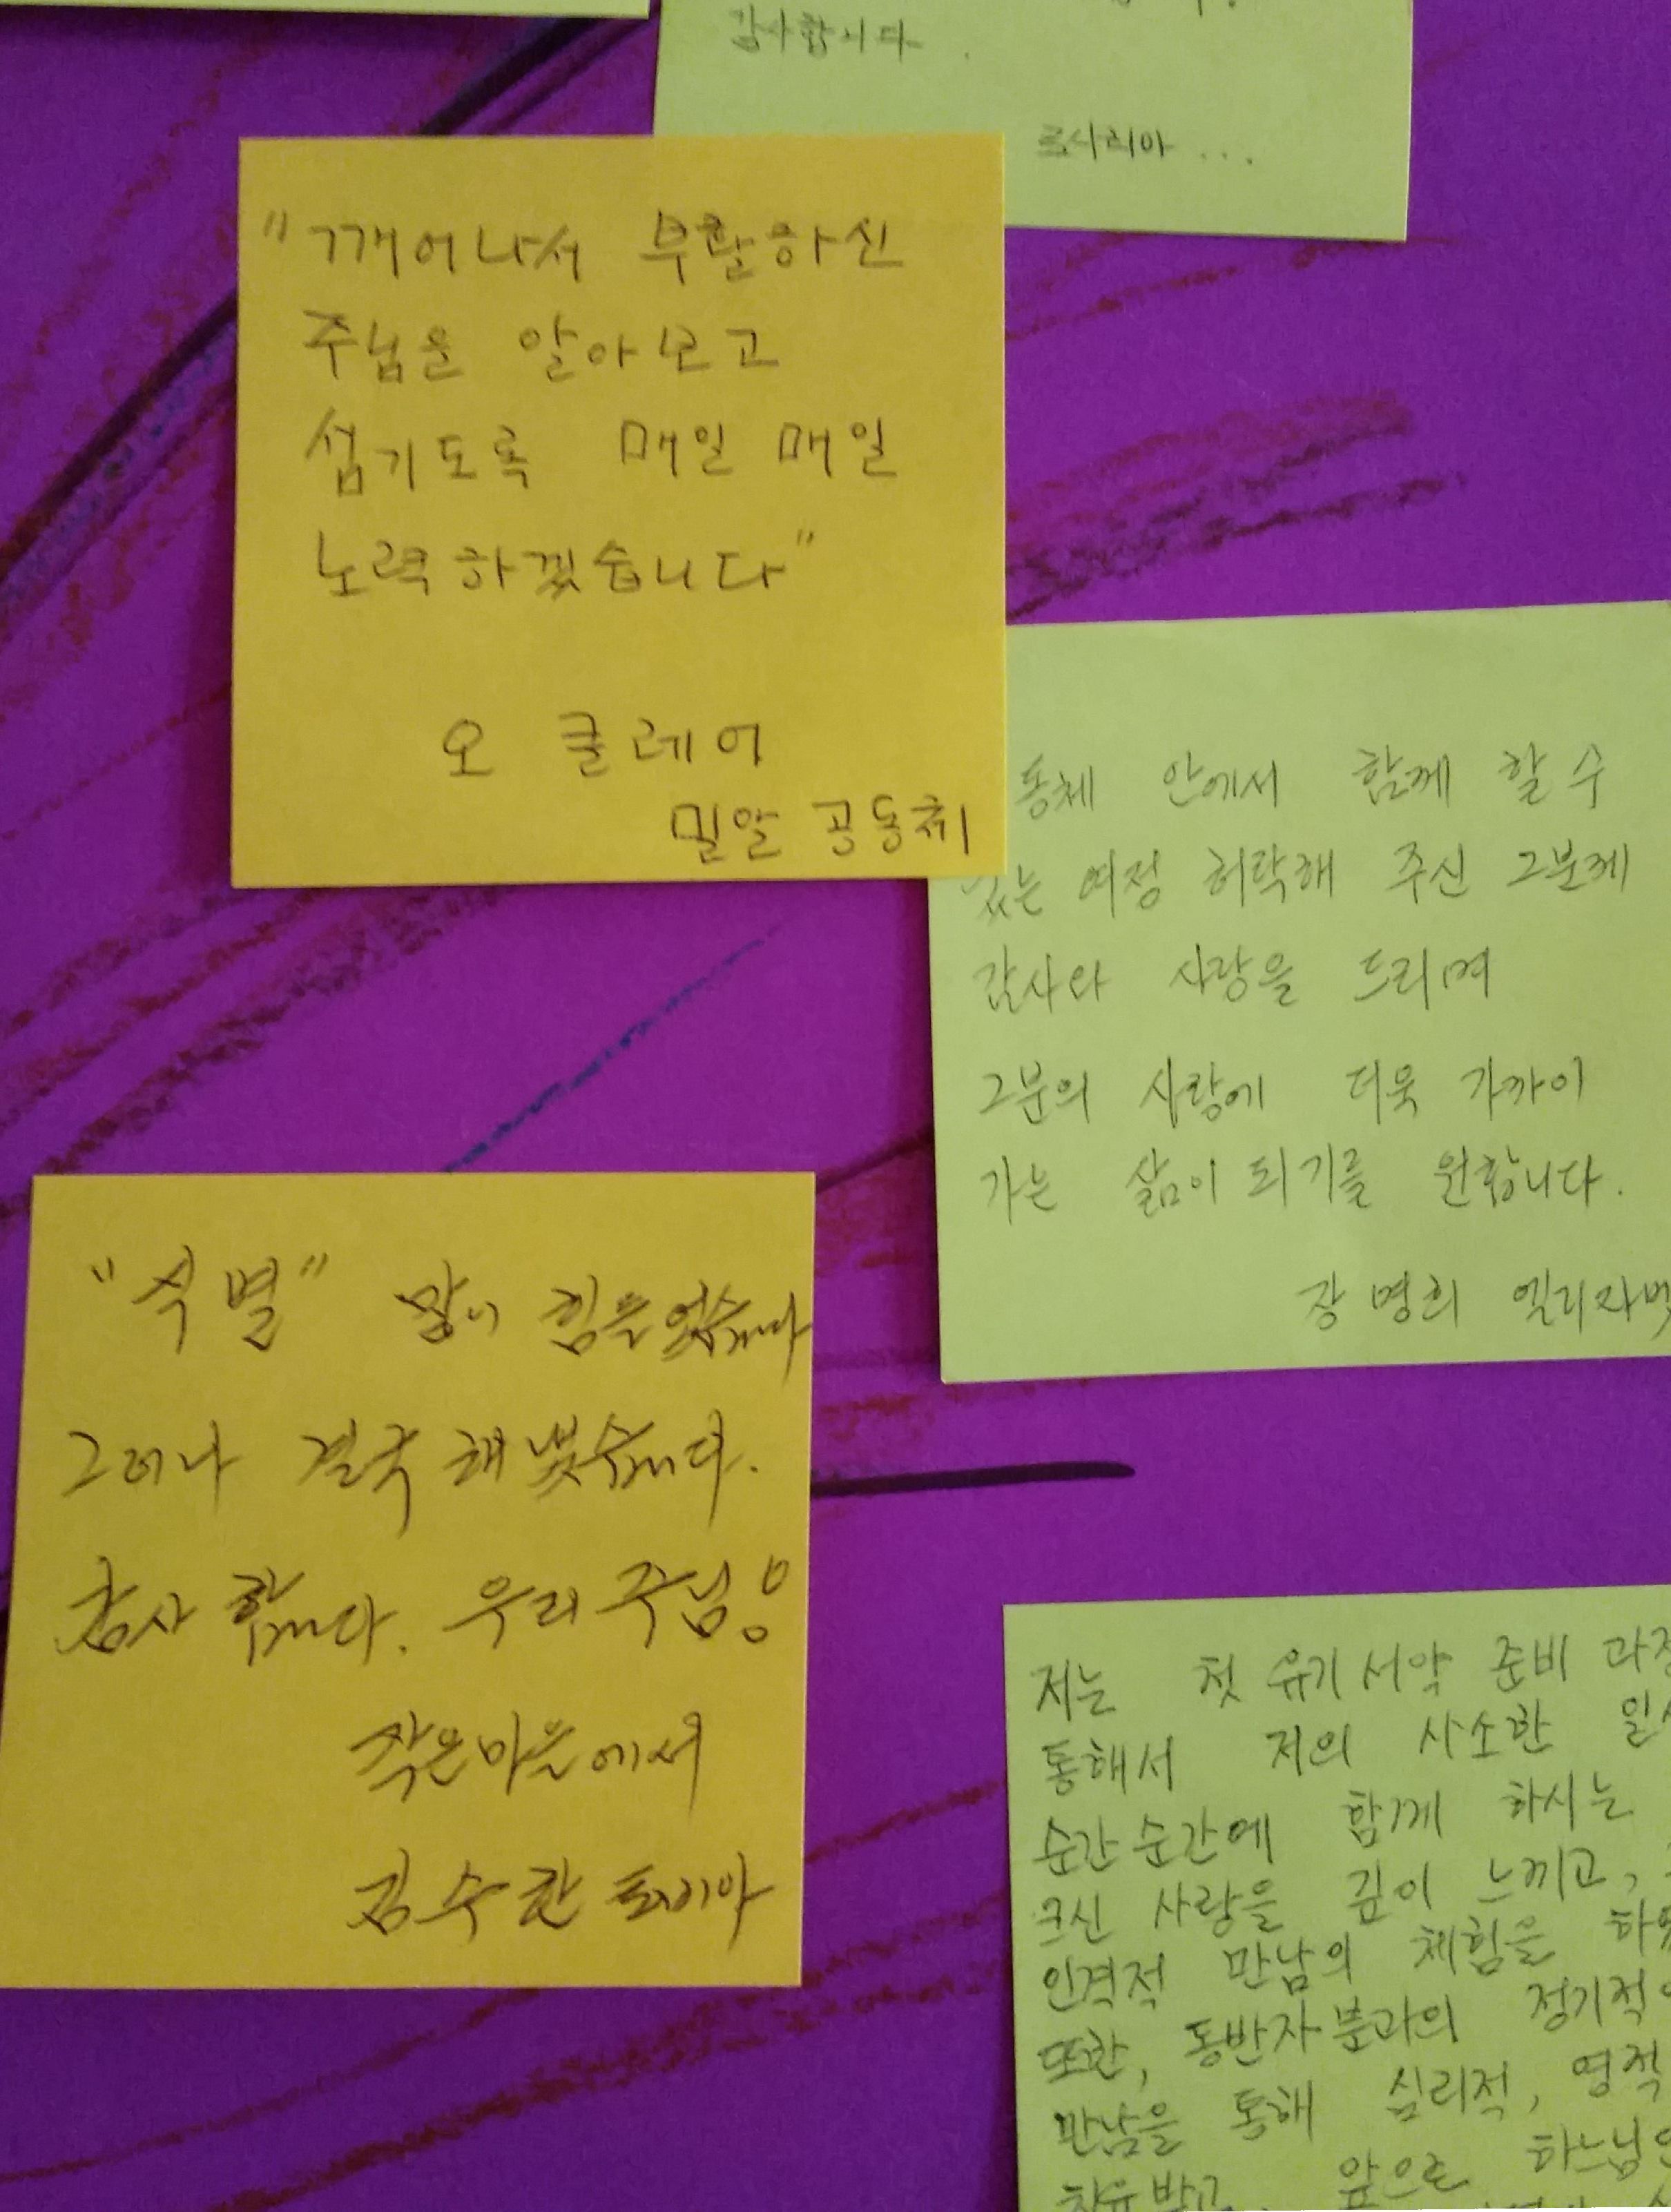 감사합니다.
로사리아...
"깨어나서 부활하신
주님을 알아보고
섬기도록 매일 매일
노력하겠습니다"
오 클레어
밀알 공동체
동체 안에서 함께 할 수
있는 여정 허락해 주신 그분께
감사와 사랑을 드리며
그분의 사랑에 더욱 가까이
가는 삶이 되기를 원합니다.
장명희 엘리자벳
"식별" 많이 힘들었습니다
그러나 결국 해냈습니다.
감사합니다. 우리 주님!
작은마을에서
김수환
저는 첫 유기서약 준비 과정
통해서 저의 사소한 일
순간순간에 함께 하시는
크신 사랑을 깊이 느끼고,
인격적 만남의 체험을
또한, 동반자분과의 정기적
만남을 통해 심리적, 영적
치유받고 앞으로 하느님